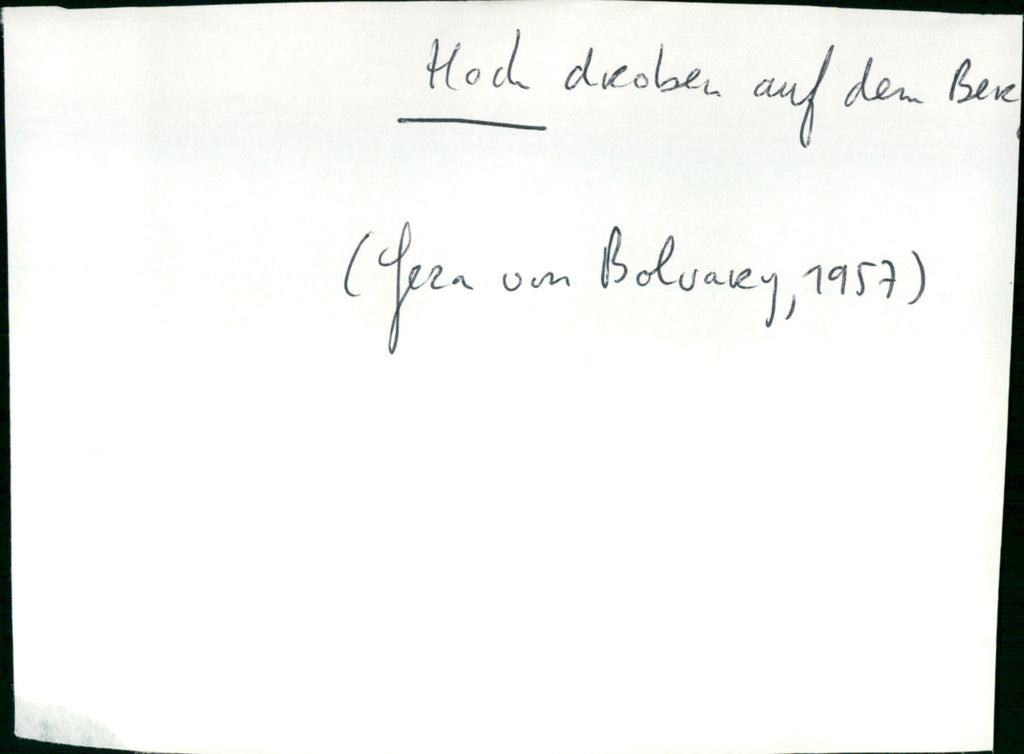 Hoch droben auf dem Ber
(Geza von Bolvary, 1957)